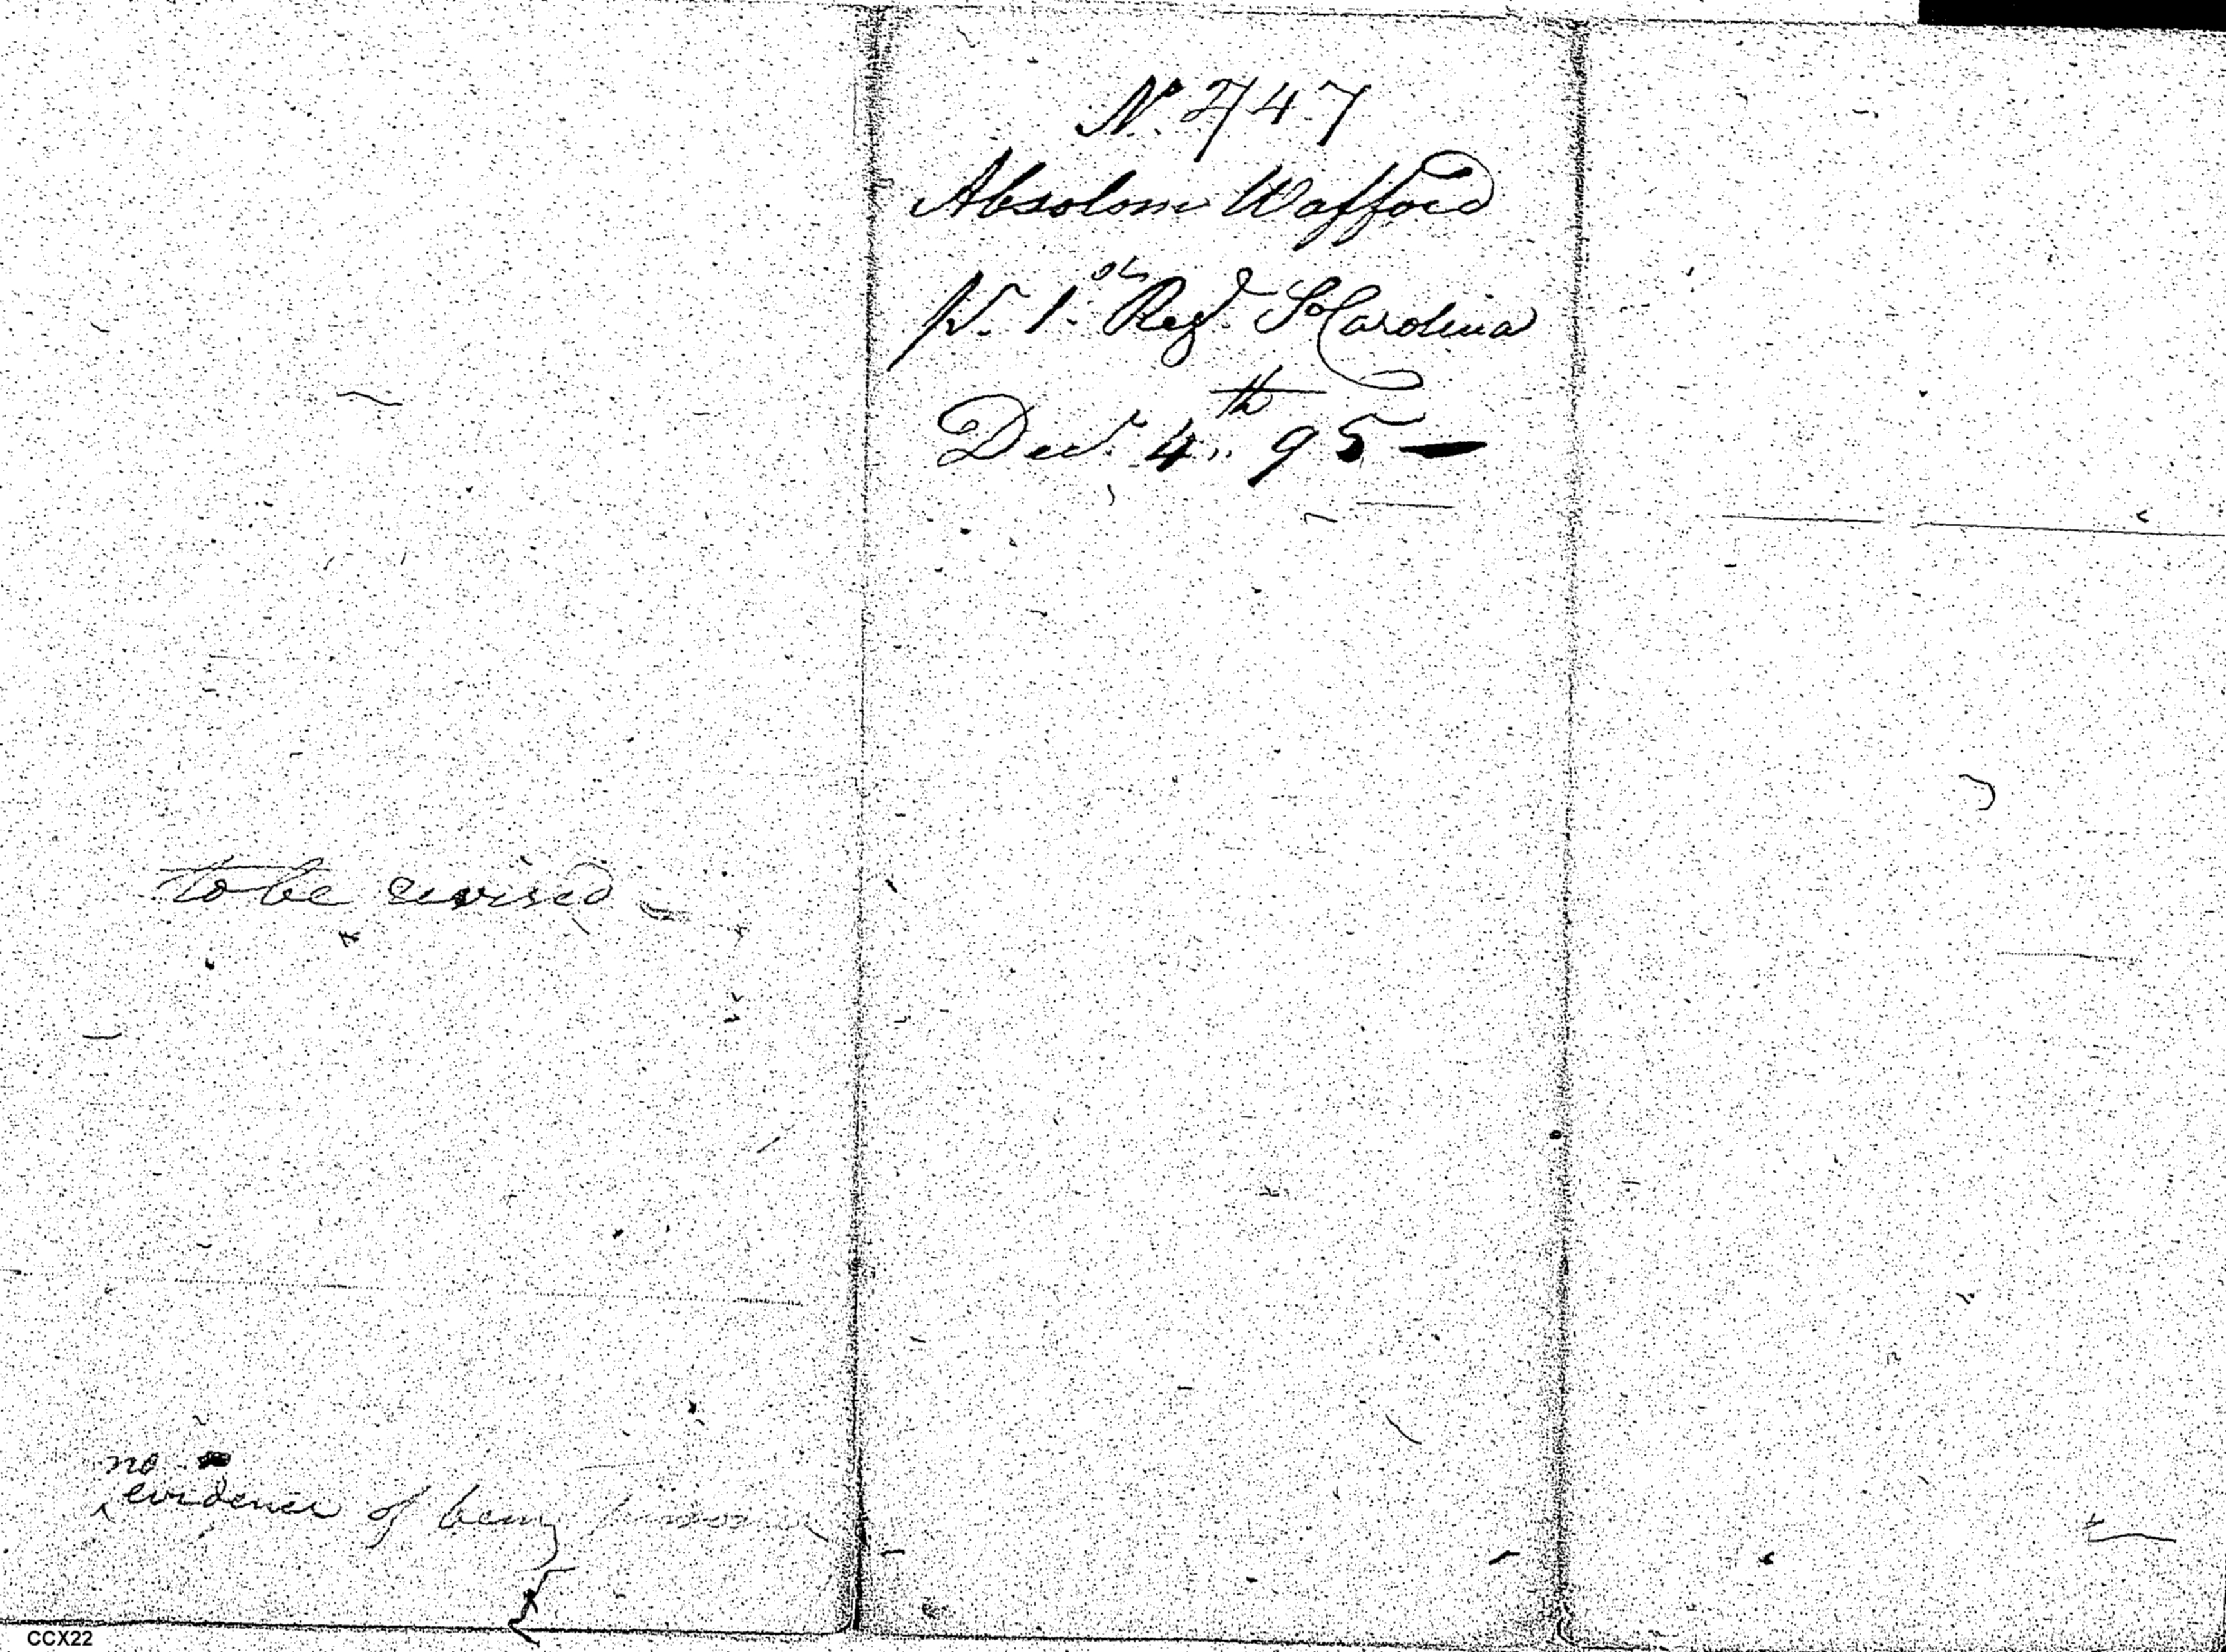 No. 2747
Absolom Wafford
pr. 1.st Regt. So Carolina
Decr. 4th 95 —
to be revised
no
^evidence of being
CCX22